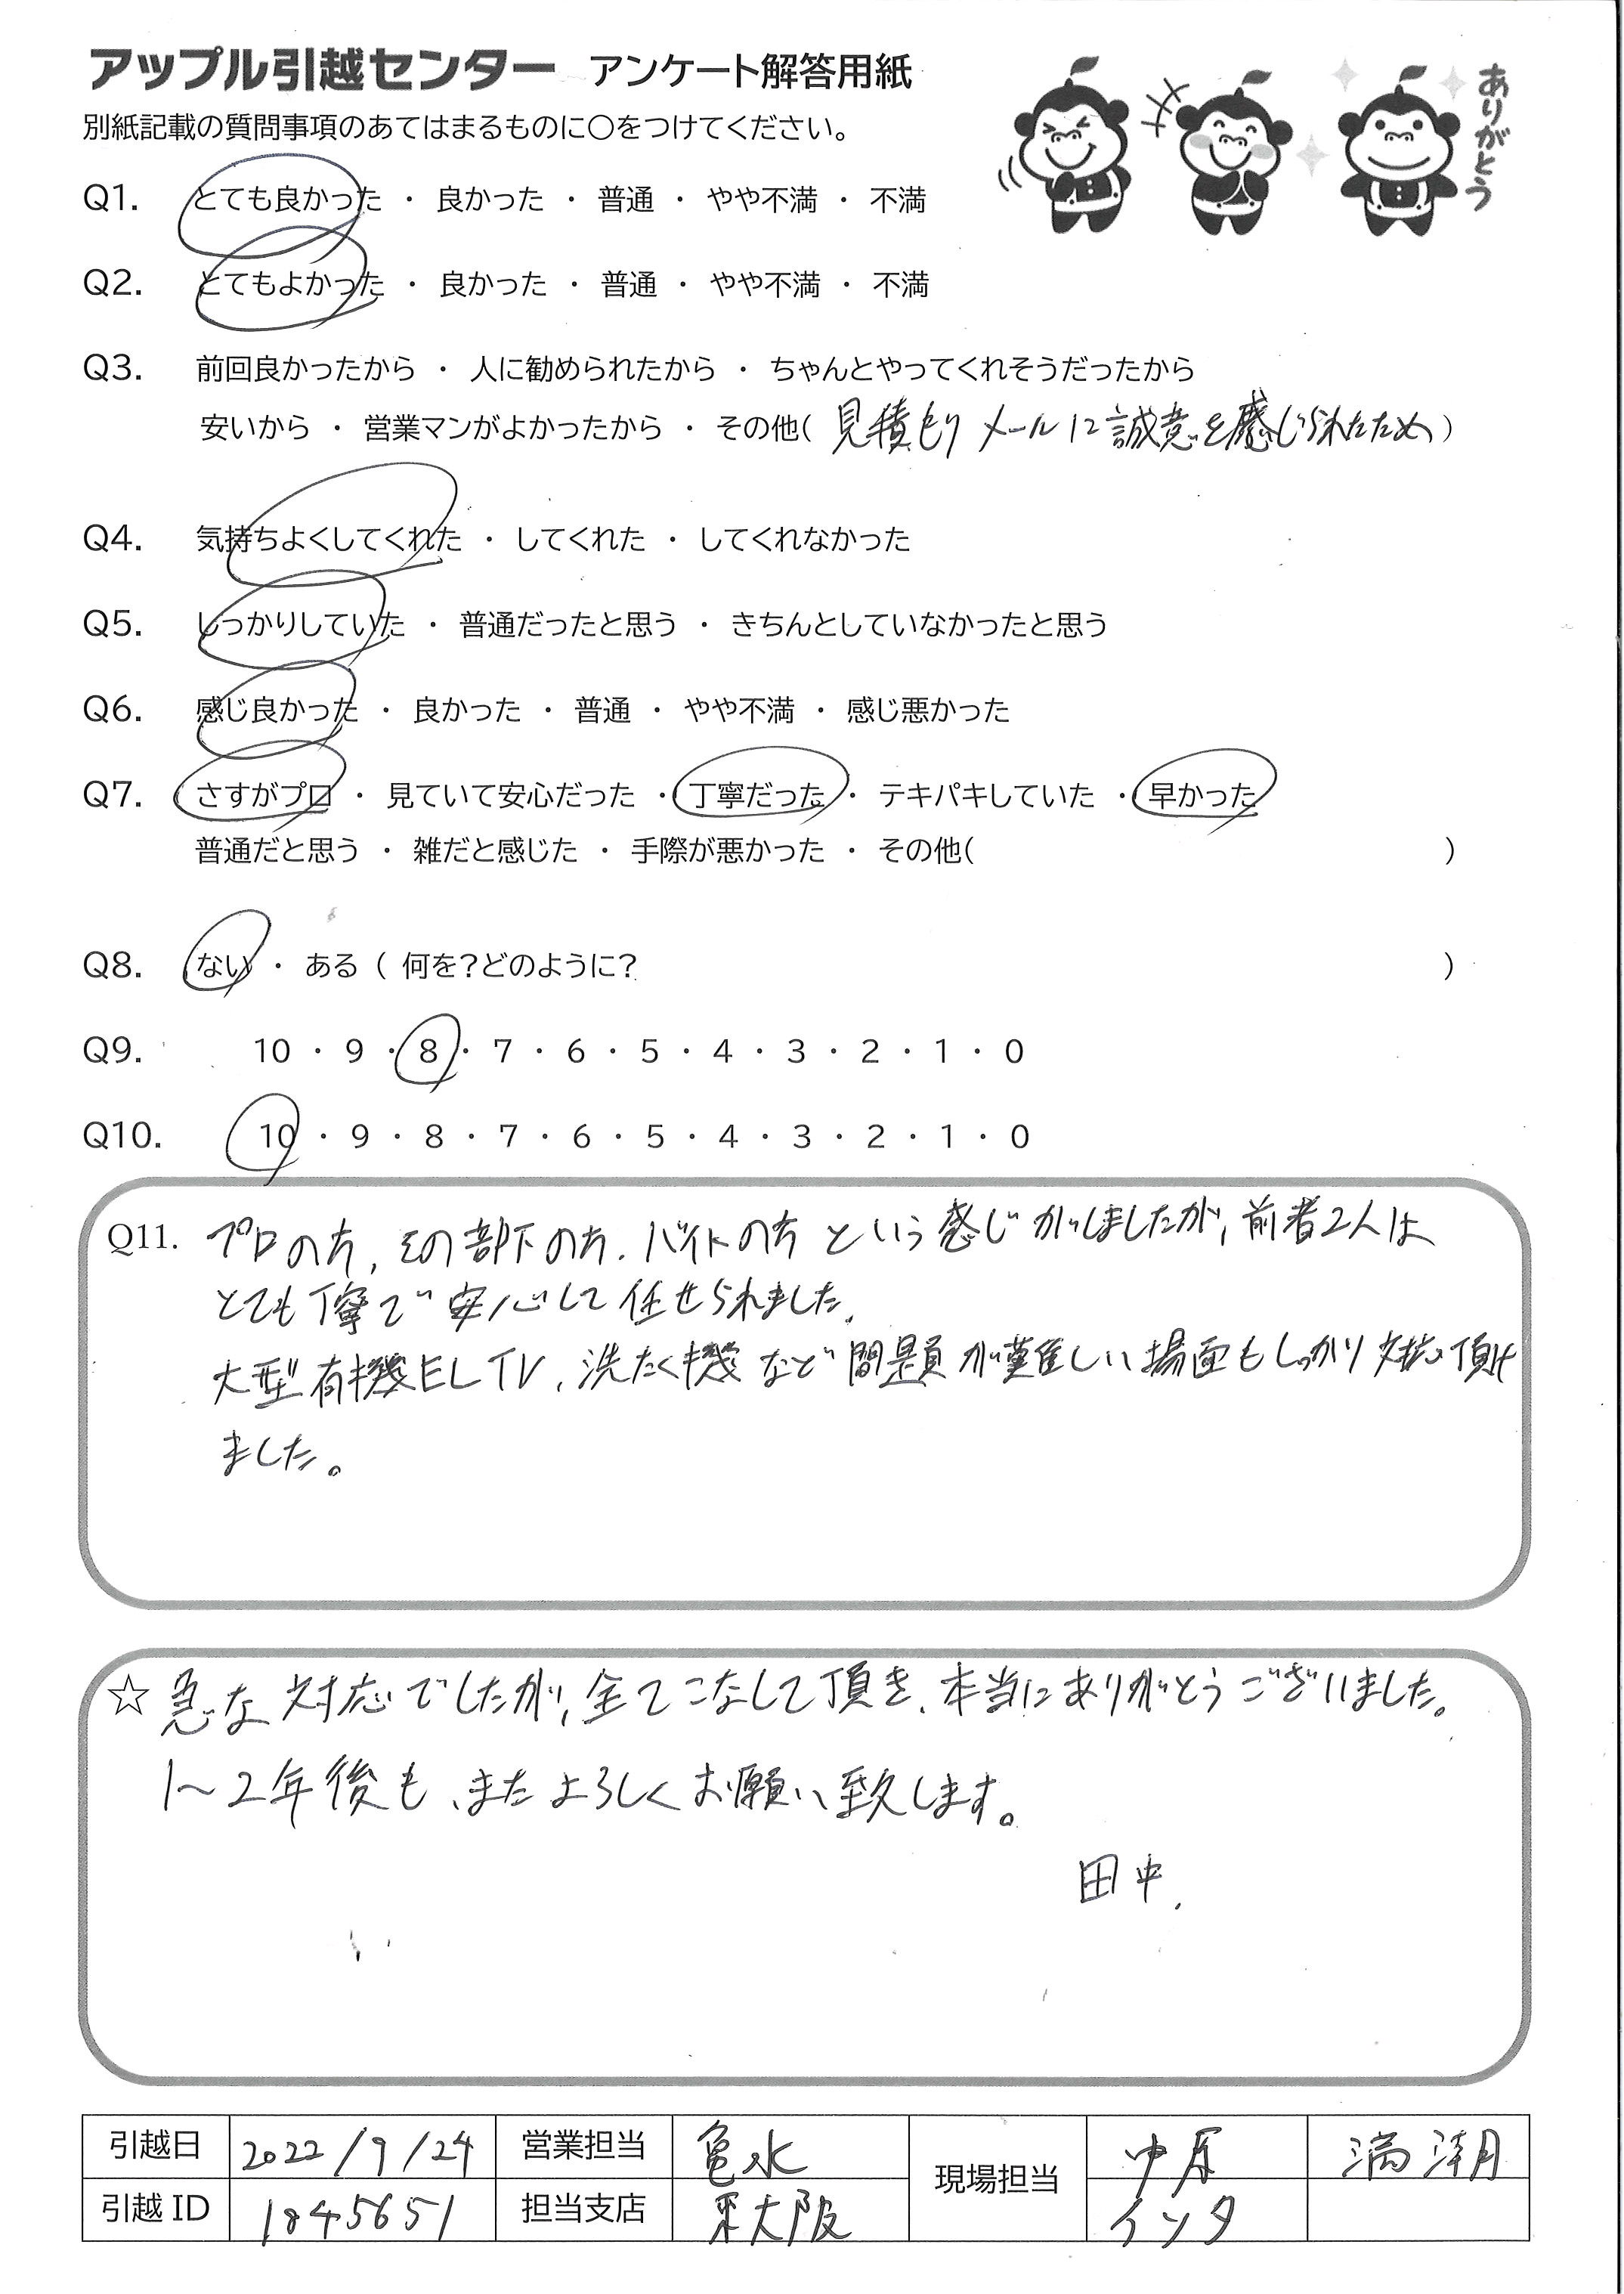 アップル引越センター アンケート解答用紙
ありがとう
別紙記載の質問事項のあてはまるものに○をつけてください。
Q1. とても良かった ・ 良かった ・ 普通 ・ やや不満 ・ 不満
Q2. とてもよかった ・ 良かった ・ 普通 ・ やや不満 ・ 不満
Q3. 前回良かったから ・ 人に勧められたから ・ ちゃんとやってくれそうだったから
安いから ・ 営業マンがよかったから ・ その他( 見積もりメールに誠意を感じられたため )
Q4. 気持ちよくしてくれた ・ してくれた ・ してくれなかった
Q5. しっかりしていた ・ 普通だったと思う ・ きちんとしていなかったと思う
Q6. 感じ良かった ・ 良かった ・ 普通 ・ やや不満 ・ 感じ悪かった
Q7. さすがプロ ・ 見ていて安心だった ・ 丁寧だった ・ テキパキしていた ・ 早かった
普通だと思う ・ 雑だと感じた ・ 手際が悪かった ・ その他( )
Q8. ない ・ ある ( 何を?どのように? )
Q9. 10 ・ 9 ・ 8 ・ 7 ・ 6 ・ 5 ・ 4 ・ 3 ・ 2 ・ 1 ・ 0
Q10. 10 ・ 9 ・ 8 ・ 7 ・ 6 ・ 5 ・ 4 ・ 3 ・ 2 ・ 1 ・ 0
Q11. プロの方、その部下の方、バイトの方 という感じがしましたが、前者2人は
とても丁寧で安心して任せられました。
大型有機ELTV、洗たく機など問題が難しい場面もしっかり対抗頂け
ました。
☆ 急な対応でしたが、全てこなして頂き、本当にありがとうございました。
1〜2年後も、またよろしくお願い致します。
田中.
引越日 2022/9/24 営業担当 亀水 現場担当 中原 満潮月
引越ID 1845651 担当支店 東大阪 インタ